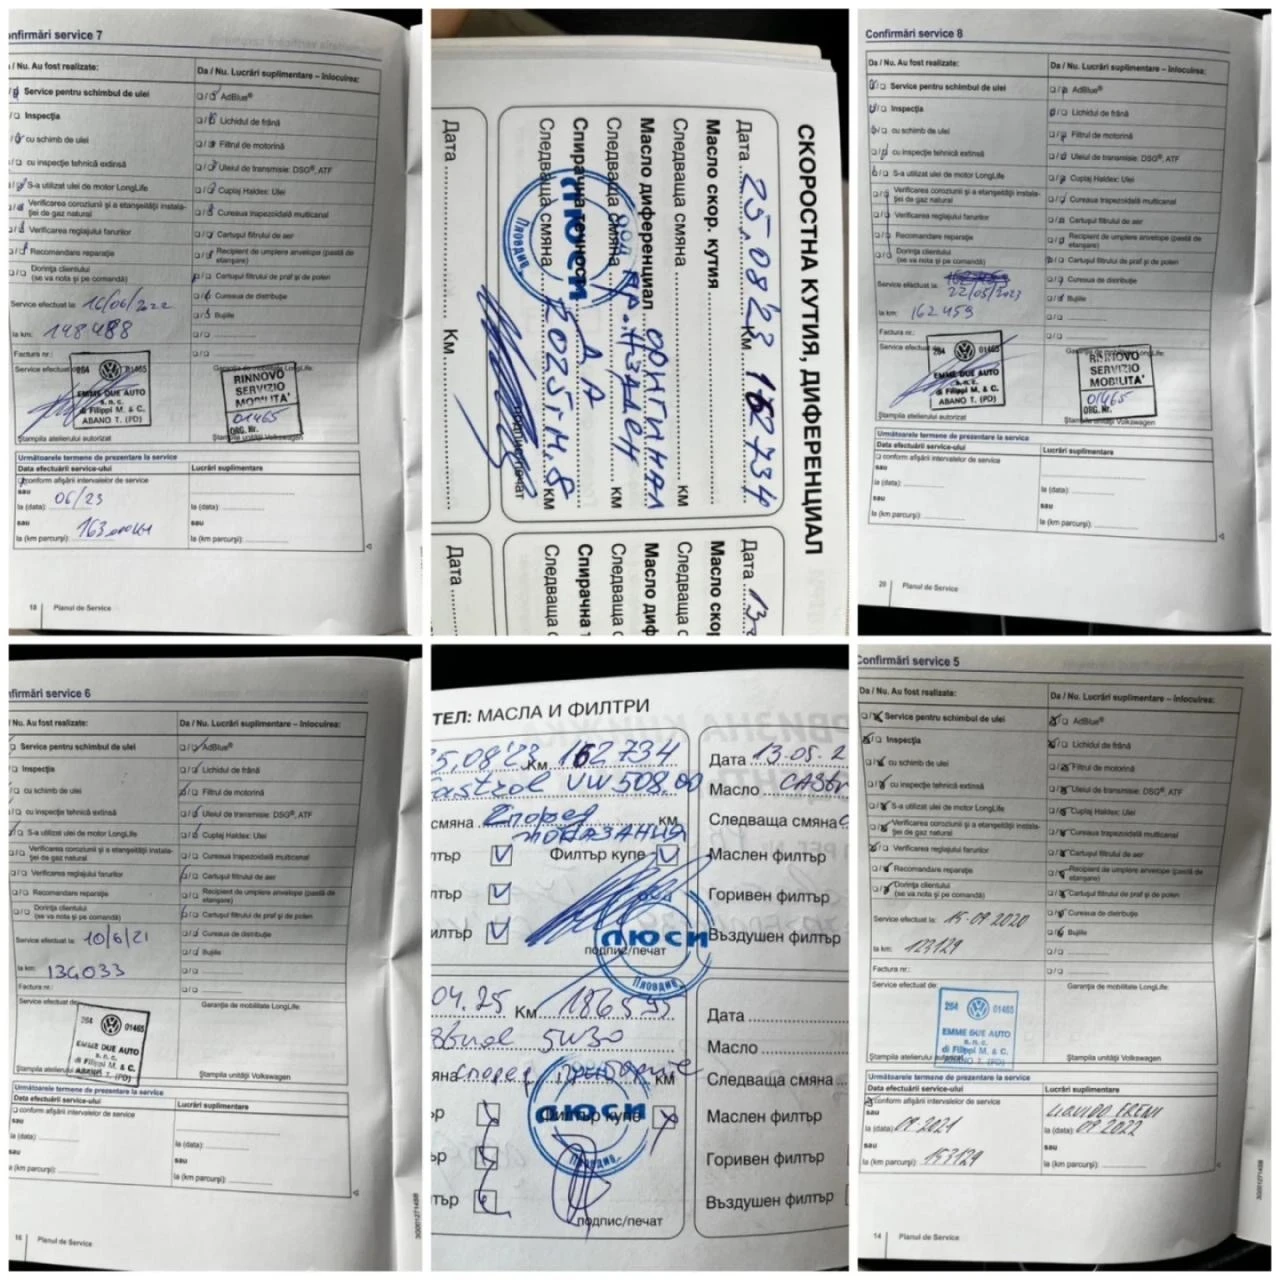 onfirmări service 7
/ Nu. Au fost realizate:
Da / Nu. Lucrări suplimentare – înlocuirea:
Service pentru schimbul de ulei
AdBlue®
Inspecția
Lichidul de frână
cu schimb de ulei
Filtrul de motorină
cu inspecție tehnică extinsă
Uleiul de transmisie: DSG®, ATF
S-a utilizat ulei de motor LongLife
Cuplaj Haldex: Ulei
Verificarea coroziunii și a etanșeității instala-
ției de gaz natural
Cureaua trapezoidală multicanal
Verificarea reglajului farurilor
Cartușul filtrului de aer
Recomandare reparație
Recipient de umplere anvelope (pastă de
etanșare)
Dorința clientului
(se va nota și pe comandă)
Cartușul filtrului de praf și de polen
Cureaua de distribuție
Service efectuat la: 16/06/2022
Bujiile
la km: 148.488
Factura nr.:
Service efectuat de:
264 01465
EMME DUE AUTO
s.n.c.
di Filippi M. & C.
ABANO T. (PD)
RINNOVO
SERVIZIO
MOBILITA'
01465
ORG. Nr.
Ștampila atelierului autorizat
Ștampila unității Volkswagen
Următoarele termene de prezentare la service
Data efectuării service-ului
Lucrări suplimentare
conform afișării intervalelor de service
sau
la (data): 06/23
la (data):
sau
sau
la (km parcurși): 163.000
la (km parcurși):
18 Planul de Service
СКОРОСТНА КУТИЯ, ДИФЕРЕНЦИАЛ
Дата 25.08'23 Км 162734
Масло скор. кутия
Следваща смяна км
Масло диференциал
Следваща смяна км
Спирачна течност ДА
Следваща смяна 2025г. М.8 км
ЛЮСИ
Пловдив
подпис/печат
Дата Км
Дата 13
Масло скор
Следваща с
Масло диф
Следваща с
Спирачна т
Следваща с
Дата
Confirmări service 8
Da / Nu. Au fost realizate:
Da / Nu. Lucrări suplimentare – înlocuirea:
Service pentru schimbul de ulei
AdBlue®
Inspecția
Lichidul de frână
cu schimb de ulei
Filtrul de motorină
cu inspecție tehnică extinsă
Uleiul de transmisie: DSG®, ATF
S-a utilizat ulei de motor LongLife
Cuplaj Haldex: Ulei
Verificarea coroziunii și a etanșeității instala-
ției de gaz natural
Cureaua trapezoidală multicanal
Verificarea reglajului farurilor
Cartușul filtrului de aer
Recomandare reparație
Recipient de umplere anvelope (pastă de
etanșare)
Dorința clientului
(se va nota și pe comandă)
Cartușul filtrului de praf și de polen
Cureaua de distribuție
Service efectuat la:
22/05/2023
Bujiile
la km: 162459
Factura nr.:
Service efectuat de:
264 01465
EMME DUE AUTO
s.n.c.
di Filippi M. & C.
ABANO T. (PD)
RINNOVO
SERVIZIO
MOBILITA'
01465
ORG. Nr.
Ștampila atelierului autorizat
Ștampila unității Volkswagen
Următoarele termene de prezentare la service
Data efectuării service-ului
Lucrări suplimentare
conform afișării intervalelor de service
sau
la (data):
la (data):
sau
sau
la (km parcurși):
la (km parcurși):
20 Planul de Service
nfirmări service 6
/ Nu. Au fost realizate:
Da / Nu. Lucrări suplimentare – înlocuirea:
Service pentru schimbul de ulei
AdBlue®
Inspecția
Lichidul de frână
cu schimb de ulei
Filtrul de motorină
cu inspecție tehnică extinsă
Uleiul de transmisie: DSG®, ATF
S-a utilizat ulei de motor LongLife
Cuplaj Haldex: Ulei
Verificarea coroziunii și a etanșeității instala-
ției de gaz natural
Cureaua trapezoidală multicanal
Verificarea reglajului farurilor
Cartușul filtrului de aer
Recomandare reparație
Recipient de umplere anvelope (pastă de
etanșare)
Dorința clientului
(se va nota și pe comandă)
Cartușul filtrului de praf și de polen
Cureaua de distribuție
Service efectuat la: 10/6/21
Bujiile
la km: 134033
Factura nr.:
Service efectuat de:
Garanția de mobilitate LongLife:
264 01465
EMME DUE AUTO
s.n.c.
di Filippi M. & C.
ABANO T. (PD)
Ștampila atelierului autorizat
Ștampila unității Volkswagen
Următoarele termene de prezentare la service
Data efectuării service-ului
Lucrări suplimentare
conform afișării intervalelor de service
sau
la (data):
la (data):
sau
sau
la (km parcurși):
la (km parcurși):
16 Planul de Service
ТЕЛ: МАСЛА И ФИЛТРИ
5.08'23 Км 162734
astrol VW508.00
смяна Според км
показания
лтър Филтър купе
лтър
илтър
ЛЮСИ
Пловдив
подпис/печат
04.25 Км 186595
5W30
яна според км
ър Филтър купе
ър
тър
ЛЮСИ
Пловдив
подпис/печат
Дата 13.05.2
Масло CAStr
Следваща смяна
Маслен филтър
Горивен филтър
Въздушен филтър
Дата
Масло
Следваща смяна
Маслен филтър
Горивен филтър
Въздушен филтър
Confirmări service 5
Da / Nu. Au fost realizate:
Da / Nu. Lucrări suplimentare – înlocuirea:
Service pentru schimbul de ulei
AdBlue®
Inspecția
Lichidul de frână
cu schimb de ulei
Filtrul de motorină
cu inspecție tehnică extinsă
Uleiul de transmisie: DSG®, ATF
S-a utilizat ulei de motor LongLife
Cuplaj Haldex: Ulei
Verificarea coroziunii și a etanșeității instala-
ției de gaz natural
Cureaua trapezoidală multicanal
Verificarea reglajului farurilor
Cartușul filtrului de aer
Recomandare reparație
Recipient de umplere anvelope (pastă de
etanșare)
Dorința clientului
(se va nota și pe comandă)
Cartușul filtrului de praf și de polen
Cureaua de distribuție
Service efectuat la: 15-09-2020
Bujiile
la km: 123129
Factura nr.:
Service efectuat de:
Garanția de mobilitate LongLife:
264 01465
EMME DUE AUTO
s.n.c.
di Filippi M. & C.
ABANO T. (PD)
Ștampila atelierului autorizat
Ștampila unității Volkswagen
Următoarele termene de prezentare la service
Data efectuării service-ului
Lucrări suplimentare
conform afișării intervalelor de service
LIQUIDO FRENI
sau
la (data): 09-2021
la (data): 09 2022
sau
sau
la (km parcurși): 153129
la (km parcurși):
14 Planul de Service